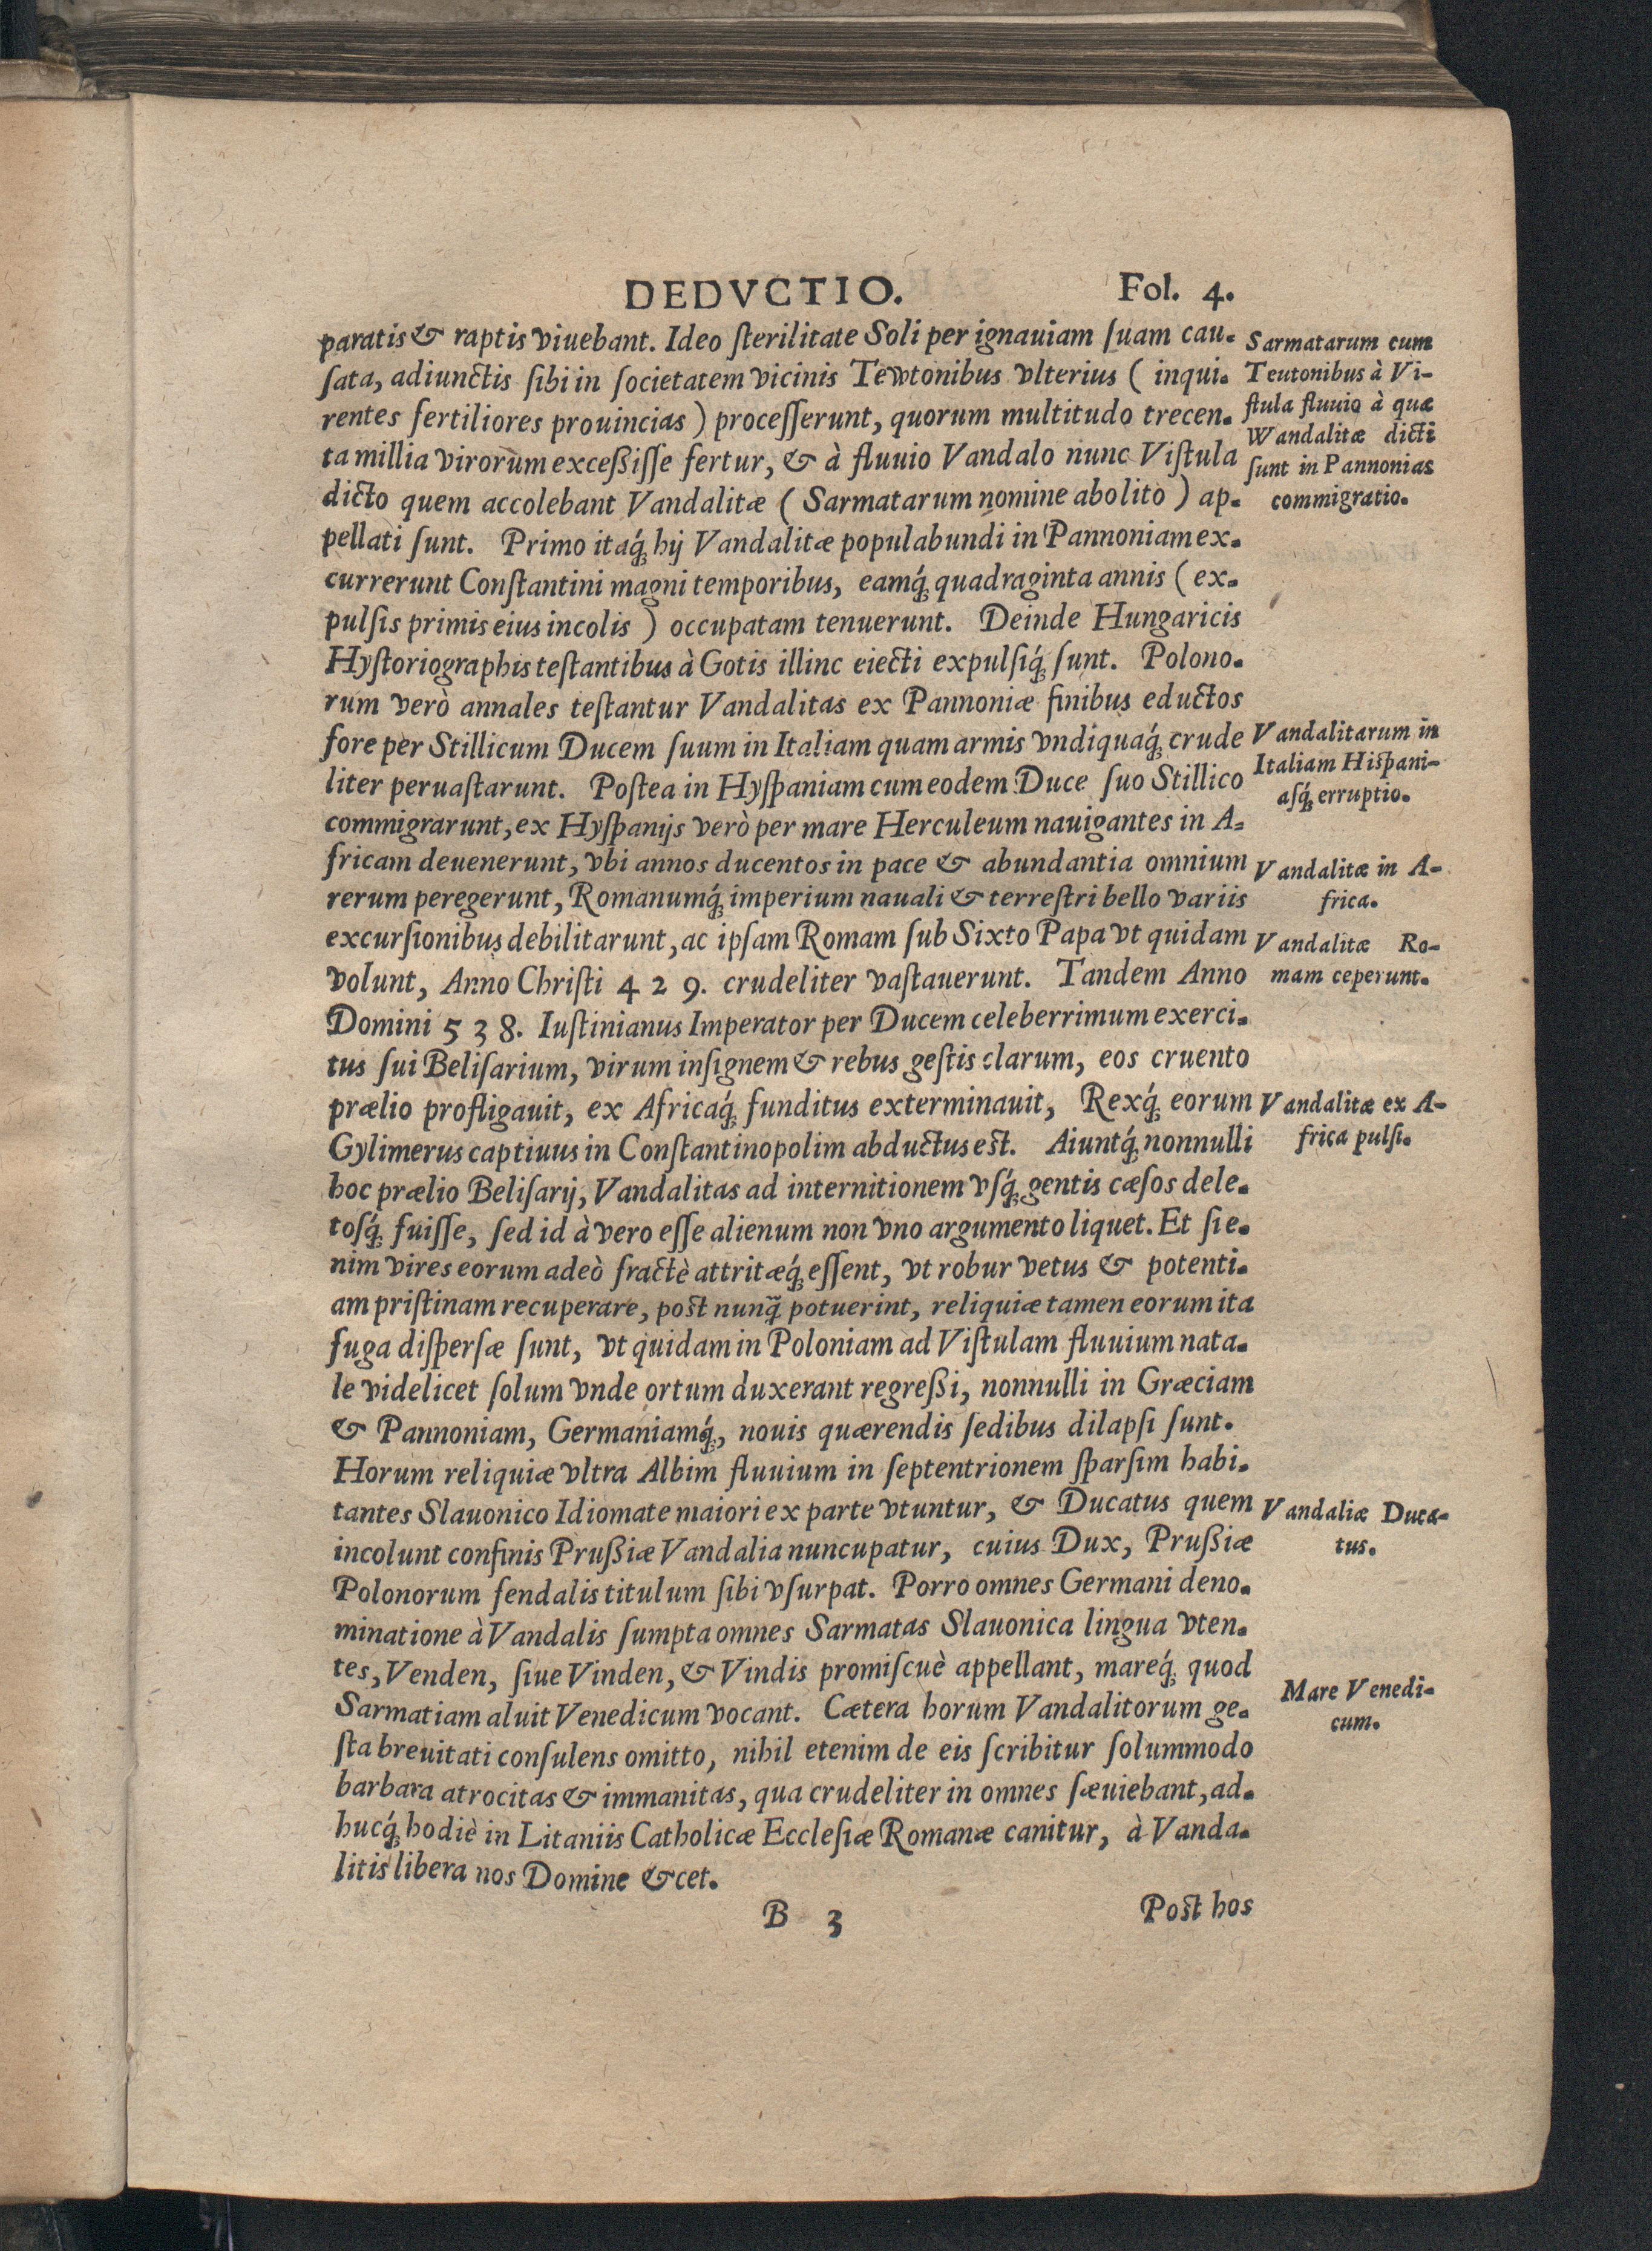 DEDVCTIO. Fol. 4.
paratis & raptis viuebant. Ideo ſterilitate Soli per ignauiam ſuam cau-
ſata, adiunctis ſibi in ſocietatem vicinis Tewtonibus vlterius ( inqui-
rentes fertiliores prouincias ) proceſſerunt, quorum multitudo trecen-
ta millia virorum exceßiſſe fertur, & à fluuio Vandalo nunc Viſtula
dicto quem accolebant Vandalitæ ( Sarmatarum nomine abolito ) ap-
pellati ſunt. Primo itaq́; hij Vandalitæ populabundi in Pannoniam ex-
currerunt Conſtantini magni temporibus, eamq́; quadraginta annis ( ex-
pulſis primis eius incolis ) occupatam tenuerunt. Deinde Hungaricis
Hyſtoriographis teſtantibus à Gotis illinc eiecti expulſiq́; ſunt. Polono-
rum verò annales teſtantur Vandalitas ex Pannoniæ finibus eductos
fore per Stillicum Ducem ſuum in Italiam quam armis vndiquaq́; crude
liter peruaſtarunt. Poſtea in Hyſpaniam cum eodem Duce ſuo Stillico
commigrarunt, ex Hyſpanijs verò per mare Herculeum nauigantes in A-
fricam deuenerunt, vbi annos ducentos in pace & abundantia omnium
rerum peregerunt, Romanumq́; imperium nauali & terreſtri bello variis
excurſionibus debilitarunt, ac ipſam Romam ſub Sixto Papa vt quidam
volunt, Anno Chriſti 4 2 9. crudeliter vaſtauerunt. Tandem Anno
Domini 5 3 8. Iuſtinianus Imperator per Ducem celeberrimum exerci-
tus ſui Beliſarium, virum inſignem & rebus geſtis clarum, eos cruento
prælio profligauit, ex Africaq́; funditus exterminauit, Rexq́; eorum
Gylimerus captiuus in Conſtantinopolim abductus eſt. Aiuntq́; nonnulli
hoc prælio Beliſarij, Vandalitas ad internitionem vſq́; gentis cæſos dele-
toſq́; fuiſſe, ſed id à vero eſſe alienum non vno argumento liquet. Et ſi e-
nim vires eorum adeò fractè attritæq́; eſſent, vt robur vetus & potenti-
am priſtinam recuperare, poſt nunq̃; potuerint, reliquiæ tamen eorum ita
fuga diſperſæ ſunt, vt quidam in Poloniam ad Viſtulam fluuium nata-
le videlicet ſolum vnde ortum duxerant regreßi, nonnulli in Græciam
& Pannoniam, Germaniamq́;, nouis quærendis ſedibus dilapſi ſunt.
Horum reliquiæ vltra Albim fluuium in ſeptentrionem ſparſim habi-
tantes Slauonico Idiomate maiori ex parte vtuntur, & Ducatus quem
incolunt confinis Prußiæ Vandalia nuncupatur, cuius Dux, Prußiæ
Polonorum fendalis titulum ſibi vſurpat. Porro omnes Germani deno-
minatione à Vandalis ſumpta omnes Sarmatas Slauonica lingua vten-
tes, Venden, ſiue Vinden, & Vindis promiſcuè appellant, mareq́; quod
Sarmatiam aluit Venedicum vocant. Cætera horum Vandalitorum ge-
ſta breuitati conſulens omitto, nihil etenim de eis ſcribitur ſolummodo
barbara atrocitas & immanitas, qua crudeliter in omnes ſæuiebant, ad-
hucq́; hodiè in Litaniis Catholicæ Eccleſiæ Romanæ canitur, à Vanda-
litis libera nos Domine &cet.
B 3 Poſt hos
Sarmatarum cum
Teutonibus à Vi-
ſtula fluuio à quæ
Wandalitæ dicti
ſunt in Pannonias
commigratio.
Vandalitarum in
Italiam Hiſpani-
aſq́; erruptio.
Vandalitæ in A-
frica.
Vandalitæ Ro-
mam ceperunt.
Vandalitæ ex A-
frica pulſi.
Vandaliæ Duca-
tus.
Mare Venedi-
cum.